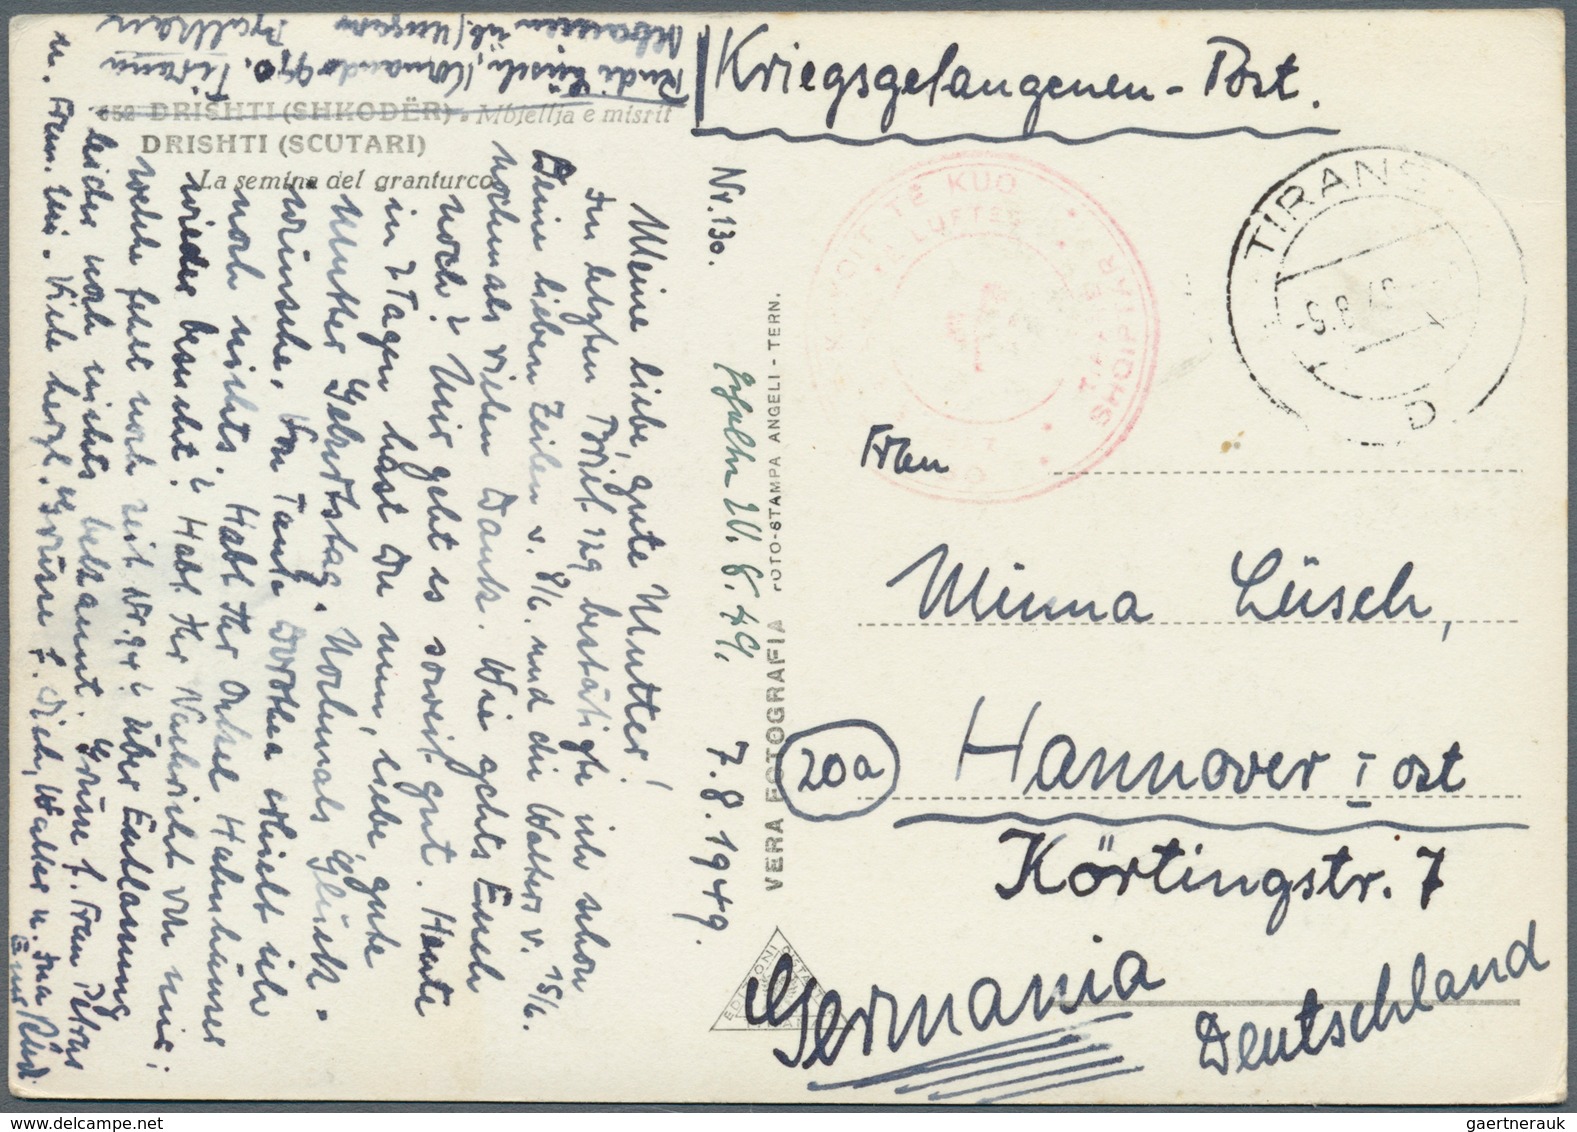 Rudi Lüsch, Kommando 990. Tirana
Albanien üb/Ungarn
Balkan
Kriegsgefangenen-Post.
652 DRISHTI (SHKODËR) - Mbjellja e misrit
DRISHTI (SCUTARI)
La semina del granturco
Nr. 130.
7.8.1949.
Meine liebe, gute Mutter!
Den letzten Brief 129 bestätigte ich schon
Deine lieben Zeilen v. 8/6. und die Walters v. 15/6.
nochmals vielen Dank. Wie gehts Euch
noch? Mir geht es soweit gut. Heute
in 2 Tagen hast Du nun, liebe, gute
Mutter Geburtstag. Nochmals Glück-
wünsche. Von Tante Dorothea erhielt ich
noch nichts. Habt Ihr Onkel
wieder besucht? Habt Ihr Nachricht von mir;
welche fehlt noch seit Nr. 94? Über Entlassung
leider noch nichts bekannt. Grüsse f. Frau Peters
u. Fam. Viele herzl. Grüsse f. Dich, Walter u. Ina
Euer Rudi
20.8.49.
VERA FOTOGRAFIA FOTO-STAMPA ANGELI - TERN.
TIRANË
-9.8.49
D
KUO
LUFTËS
SHQIPËR
Frau
Minna Lüsch,
20a
Hannover I ost
Körtingstr. 7
Germania
Deutschland
gaertnerauk